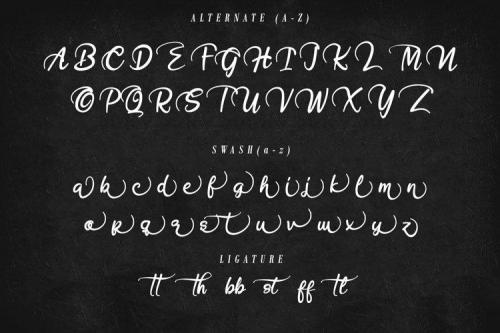 ALTERNATE (A-Z)
A B C D E F G H I J K L M N
O P Q R S T U V W X Y Z
SWASH(a-z)
a b c d e f g h i j k l m n
o p q r s t u v w x y z
LIGATURE
tt th bb st ff tl